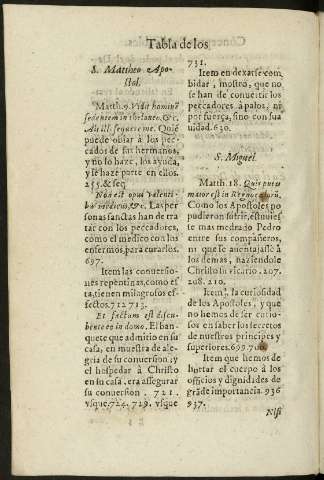 Tabla de los
S. Mattheo Apo-
stol.
Matth. 9. Vidit hominē
sedentem in thelonio, &c.
Ait illi sequere me. Quiē
puede obiar à los pec-
cados de sus hermanos,
y no lo haze, los ayuda,
y le haze parte en ellos.
255. & seq
Non est opus valenti-
bus medicus, &c. Las per
sonas sanctas han de tra-
tar con los peccadores,
como el medico con los
enfermos para curarlos.
697.
Item las conuersio-
nes repentinas, como es
ta, tienen milagrosos ef-
fectos. 712 713.
Et factum est discu-
bente eo in domo. El ban-
quete que admitio en su
casa, en muestra de ale-
gria de su conuersion, y
el hospedar à Christo
en su casa, era assegurar
su conuersion. 721.
vsque. 724. 729. vsque
731.
Item en dexarse com
bidar, mostrò, que no
se han de conuertir los
peccadores à palos, ni
por fuerça, sino con sua
uidad. 630.
S. Miguel.
Matth. 18. Quis putas
maior est in Regno cœlorū.
Como los Apostoles po
pudieron sufrir, estuuies
se mas medrado Pedro
entre sus compañeros,
ni que le auentajasse à
los demas, haziendole
Christo su vicario. 207.
208. 210.
Item, la curiosidad
de los Apostoles, y que
no hemos de ser curio-
sos en saber los secretos
de nuestros principes y
superiores. 699. 700.
Item que hemos de
hurtar el cuerpo à los
officios y dignidades de
grāde importancia. 936
937.
Nisi